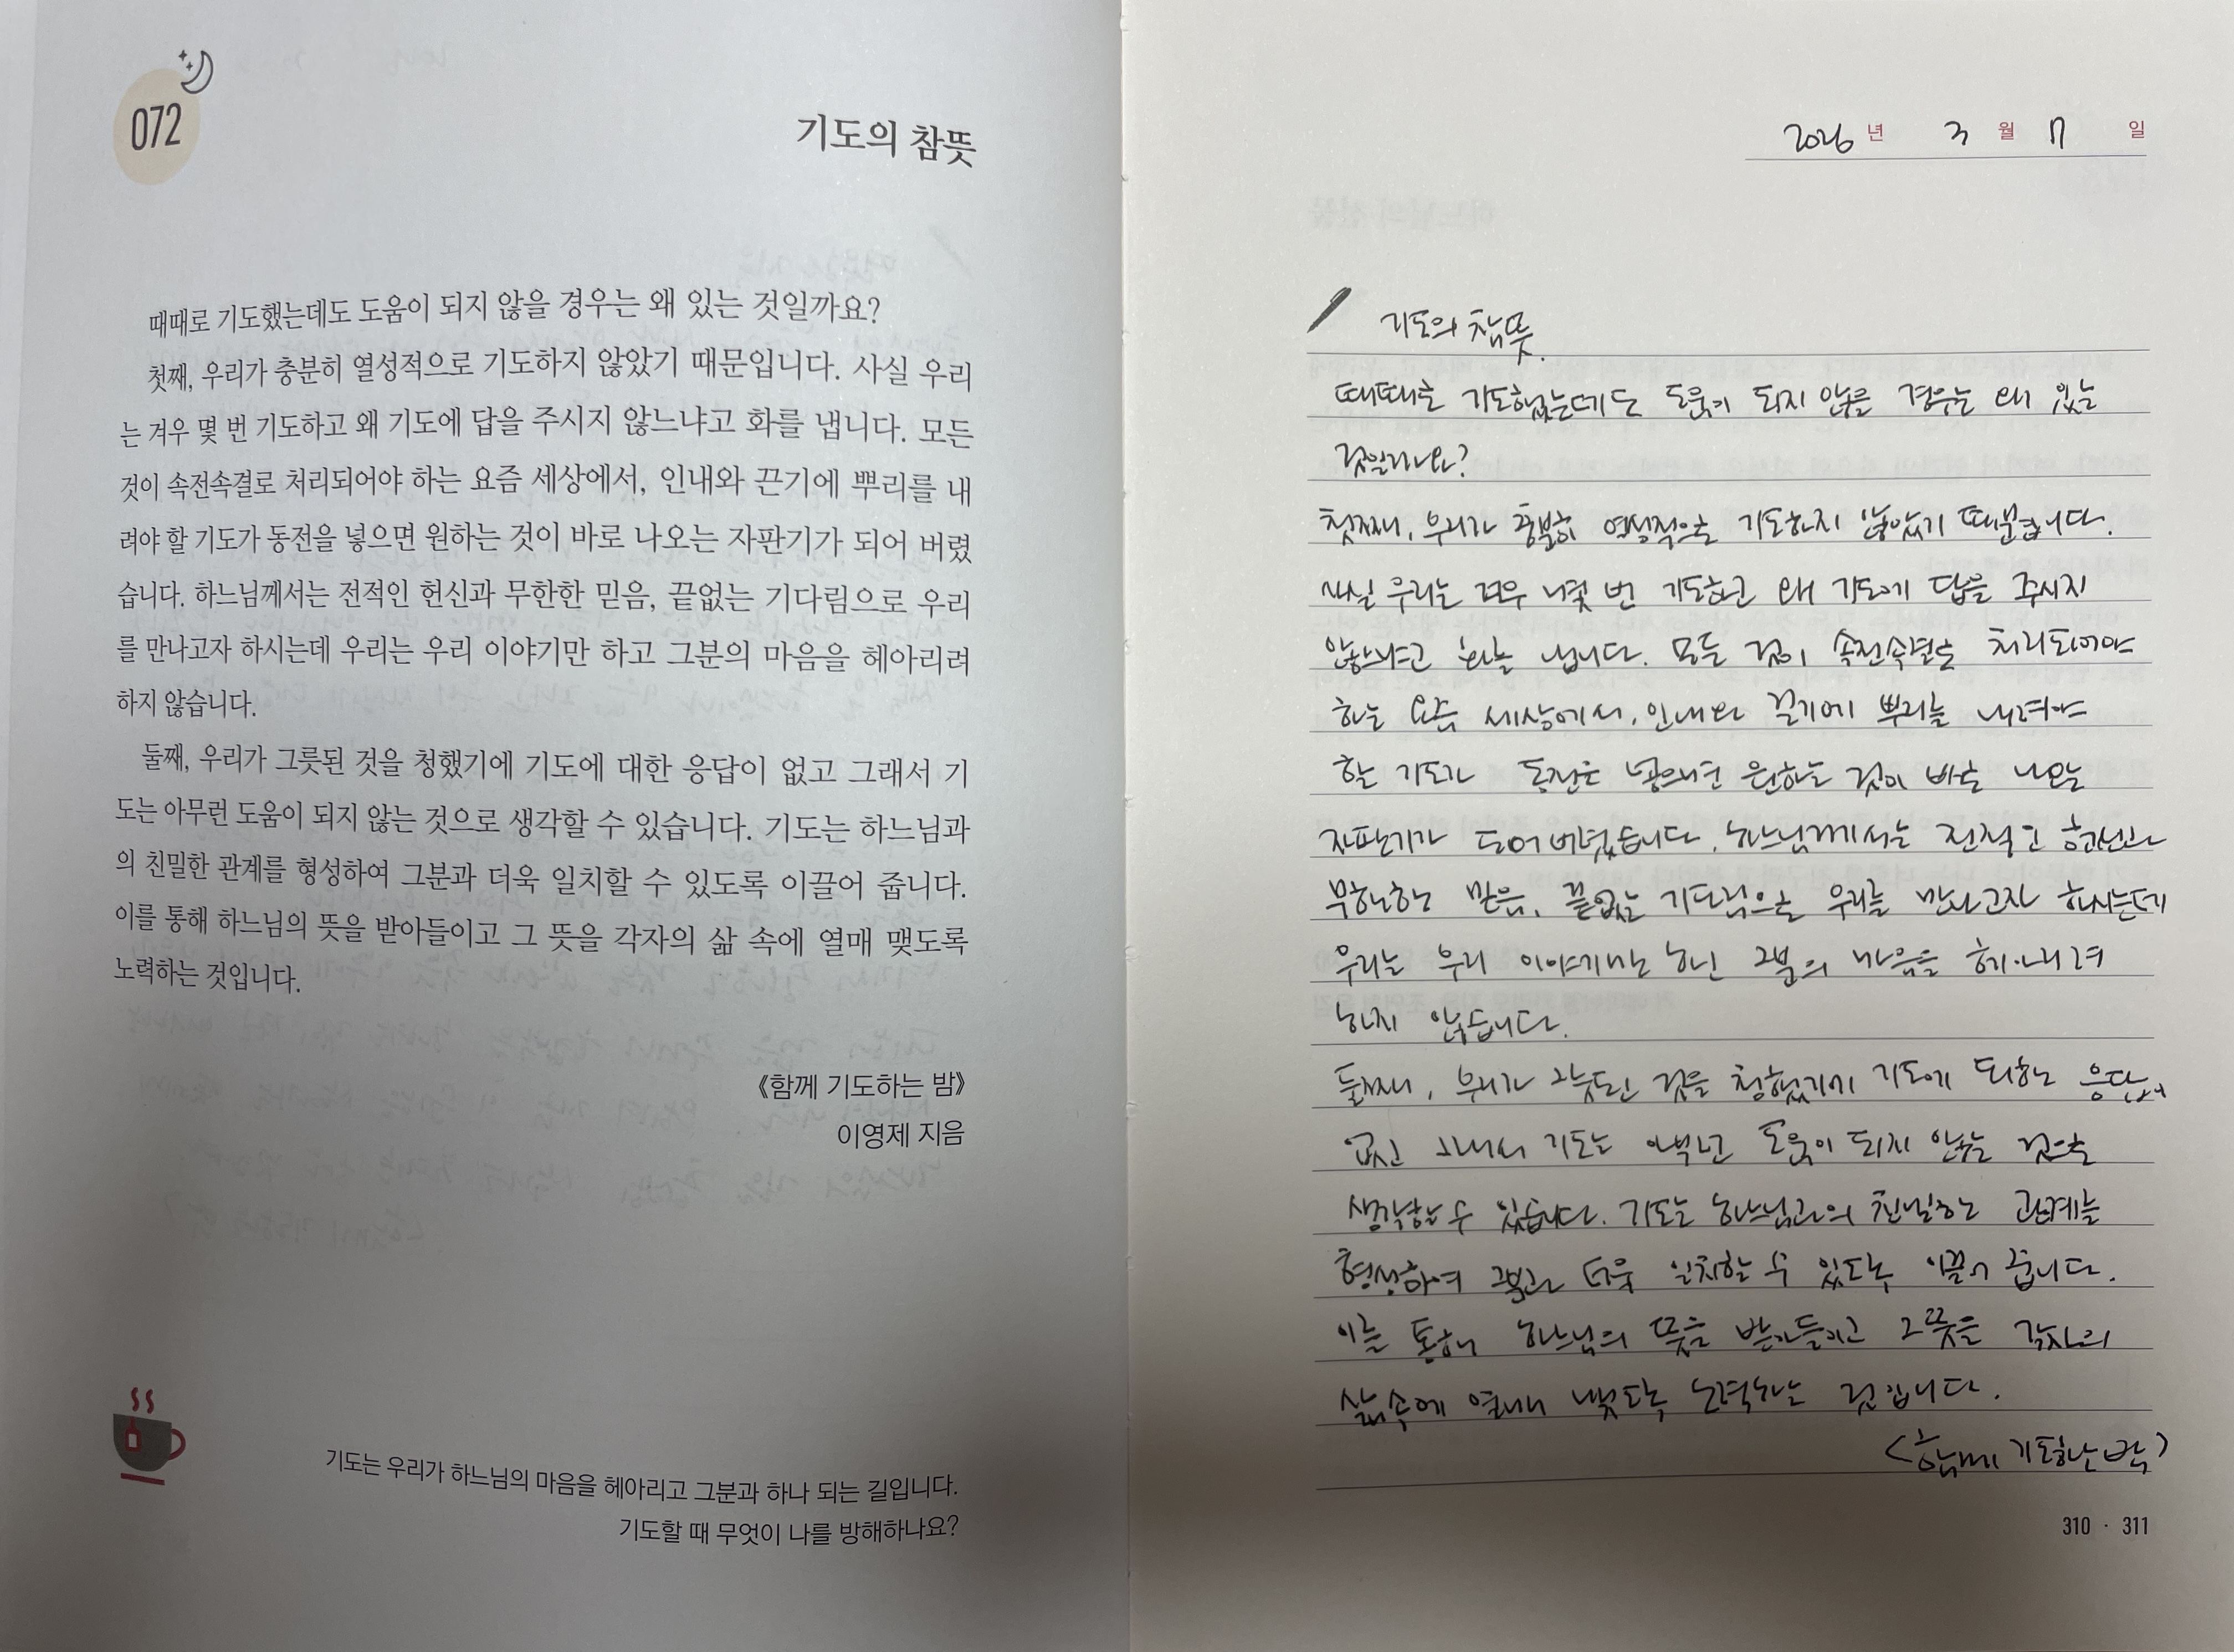 072
기도의 참뜻
때때로 기도했는데도 도움이 되지 않을 경우는 왜 있는 것일까요?
첫째, 우리가 충분히 열성적으로 기도하지 않았기 때문입니다. 사실 우리
는 겨우 몇 번 기도하고 왜 기도에 답을 주시지 않느냐고 화를 냅니다. 모든
것이 속전속결로 처리되어야 하는 요즘 세상에서, 인내와 끈기에 뿌리를 내
려야 할 기도가 동전을 넣으면 원하는 것이 바로 나오는 자판기가 되어 버렸
습니다. 하느님께서는 전적인 헌신과 무한한 믿음, 끝없는 기다림으로 우리
를 만나고자 하시는데 우리는 우리 이야기만 하고 그분의 마음을 헤아리려
하지 않습니다.
둘째, 우리가 그릇된 것을 청했기에 기도에 대한 응답이 없고 그래서 기
도는 아무런 도움이 되지 않는 것으로 생각할 수 있습니다. 기도는 하느님과
의 친밀한 관계를 형성하여 그분과 더욱 일치할 수 있도록 이끌어 줍니다.
이를 통해 하느님의 뜻을 받아들이고 그 뜻을 각자의 삶 속에 열매 맺도록
노력하는 것입니다.
《함께 기도하는 밤》
이영제 지음
기도는 우리가 하느님의 마음을 헤아리고 그분과 하나 되는 길입니다.
기도할 때 무엇이 나를 방해하나요?
2026년 3월 17일
기도의 참뜻.
때때로 기도했는데도 도움이 되지 않을 경우는 왜 있는
것일까요?
첫째, 우리가 충분히 열성적으로 기도하지 않았기 때문입니다.
사실 우리는 겨우 몇 번 기도하고 왜 기도에 답을 주시지
않느냐고 화를 냅니다. 모든 것이 속전속결로 처리되어야
하는 요즘 세상에서, 인내와 끈기에 뿌리를 내려야
할 기도가 동전을 넣으면 원하는 것이 바로 나오는
자판기가 되어 버렸습니다. 하느님께서는 전적인 헌신과
무한한 믿음, 끝없는 기다림으로 우리를 만나고자 하시는데
우리는 우리 이야기만 하고 그분의 마음을 헤아리려
하지 않습니다.
둘째, 우리가 그릇된 것을 청했기에 기도에 대한 응답이
없고 그래서 기도는 아무런 도움이 되지 않는 것으로
생각할 수 있습니다. 기도는 하느님과의 친밀한 관계를
형성하여 그분과 더욱 일치할 수 있도록 이끌어 줍니다.
이를 통해 하느님의 뜻을 받아들이고 그 뜻을 각자의
삶 속에 열매 맺도록 노력하는 것입니다.
<함께 기도하는 밤>
310 · 311